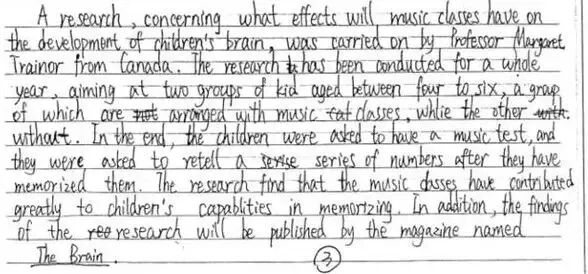 A research, concerning what effects will music classes have on
the development of children's brain, was carried on by Professor Margaret
Trainor from Canada. The research has been conducted for a whole
year, aiming at two groups of kid aged between four to six, a group
of which are not arranged with music cat classes, while the other with.
without. In the end, the children were asked to have a music test, and
they were asked to retell a serise series of numbers after they have
memorized them. The research find that the music classes have contributed
greatly to children's capablities in memorizing. In addition, the findings
of the reo research will be published by the magazine named
The Brain.
3